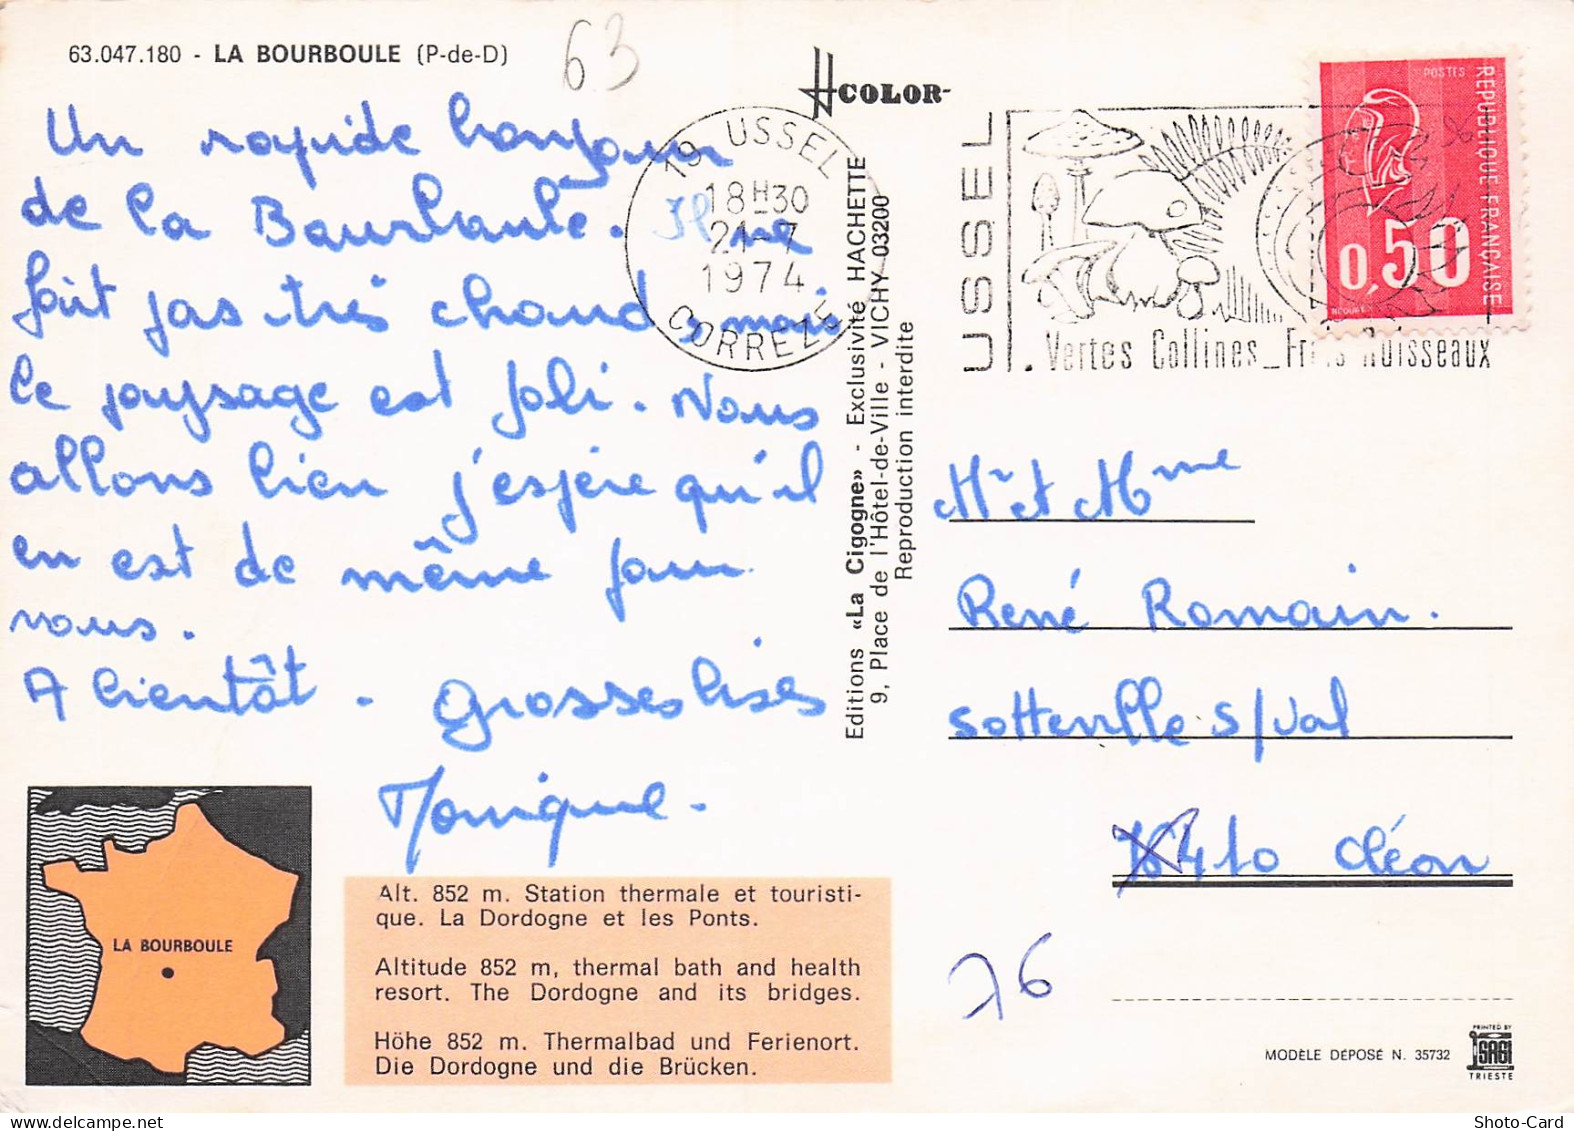 63.047.180 - LA BOURBOULE (P-de-D)
63
COLOR
Un rapide bonjour
de la Bourboule. Il ne
fait pas très chaud, mais
le paysage est joli. Nous
allons bien j'espère qu'il
en est de même pour
vous.
A bientôt - Grosses bises
Monique -
19 USSEL
18H30
21-7
1974
CORREZE
USSEL
Vertes Collines_Frais Ruisseaux
POSTES
REPUBLIQUE FRANÇAISE
0,50
Editions «La Cigogne» - Exclusivité HACHETTE
9, Place de l'Hôtel-de-Ville - VICHY 03200
Reproduction interdite
Mr et Mme
René Romain.
Sotteville s/val
76410 Cléon
76
LA BOURBOULE
Alt. 852 m. Station thermale et touristi-
que. La Dordogne et les Ponts.
Altitude 852 m, thermal bath and health
resort. The Dordogne and its bridges.
Höhe 852 m. Thermalbad und Ferienort.
Die Dordogne und die Brücken.
MODÈLE DÉPOSÉ N. 35732
PRINTED BY
SAGI
TRIESTE
Shoto-Card